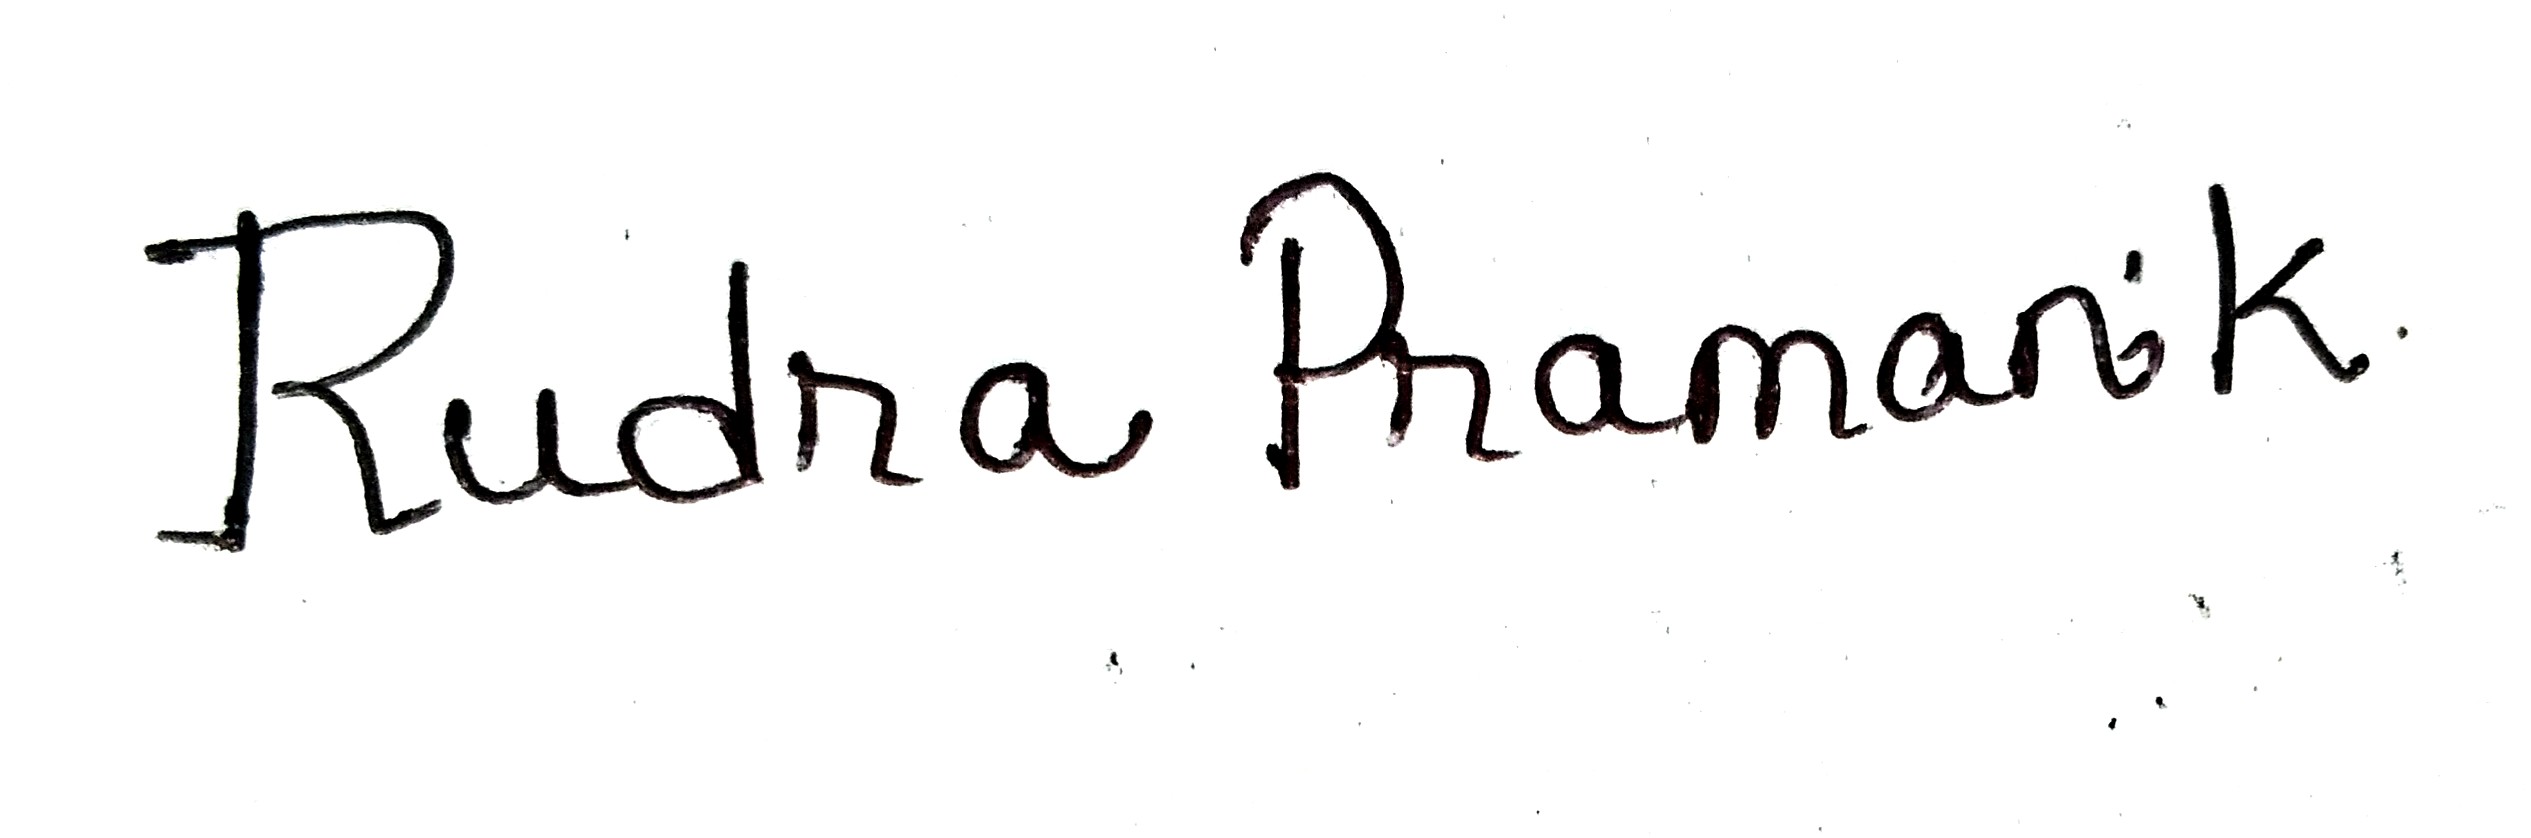 Rudra Pramanik.